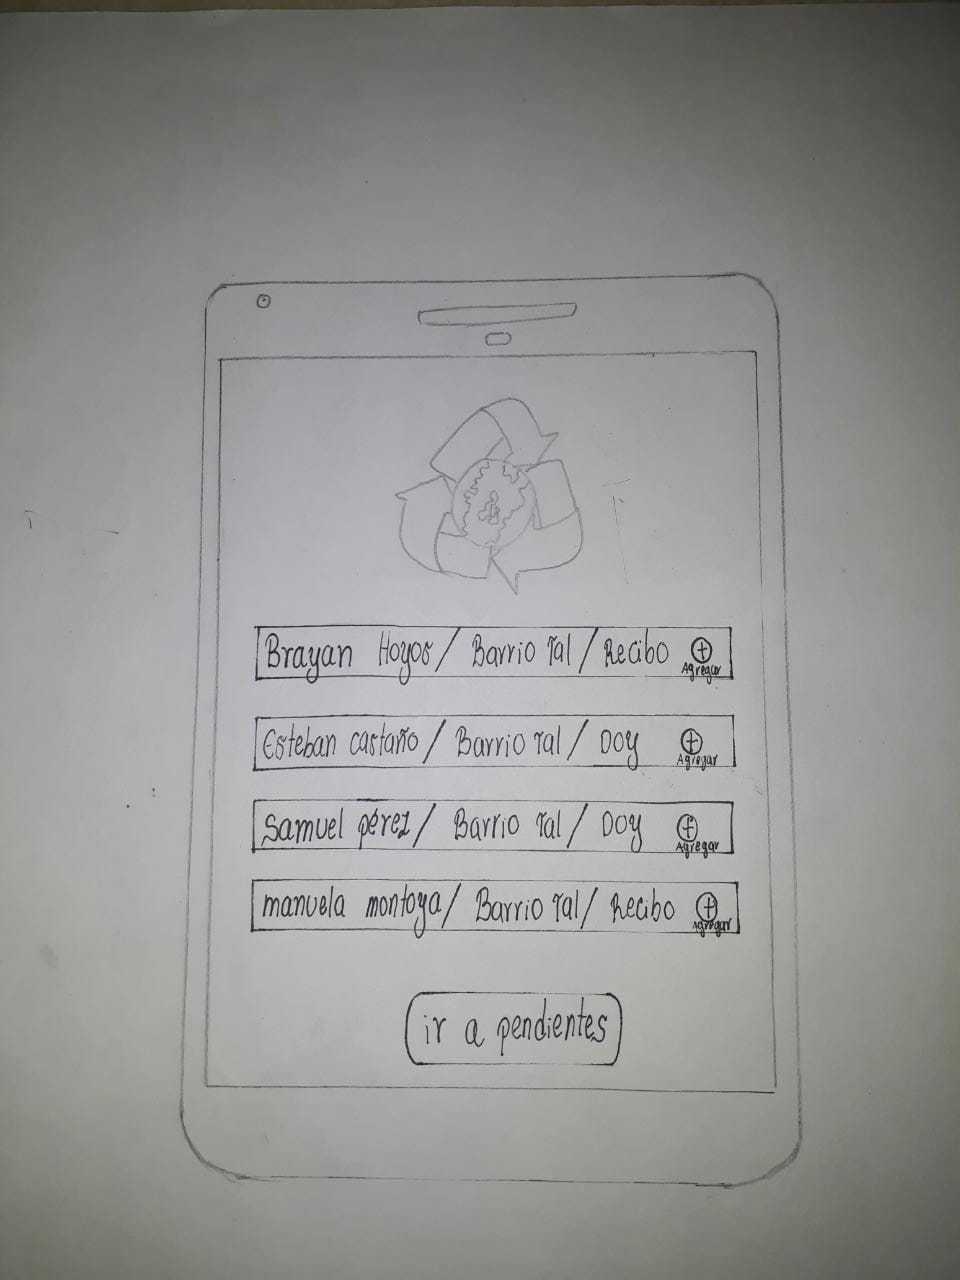 Brayan Hoyos / Barrio Tal / Recibo
Agregar
Esteban castaño / Barrio Tal / Doy
Agregar
Samuel pérez / Barrio Tal / Doy
Agregar
manuela montoya / Barrio Tal / Recibo
Agregar
ir a pendientes